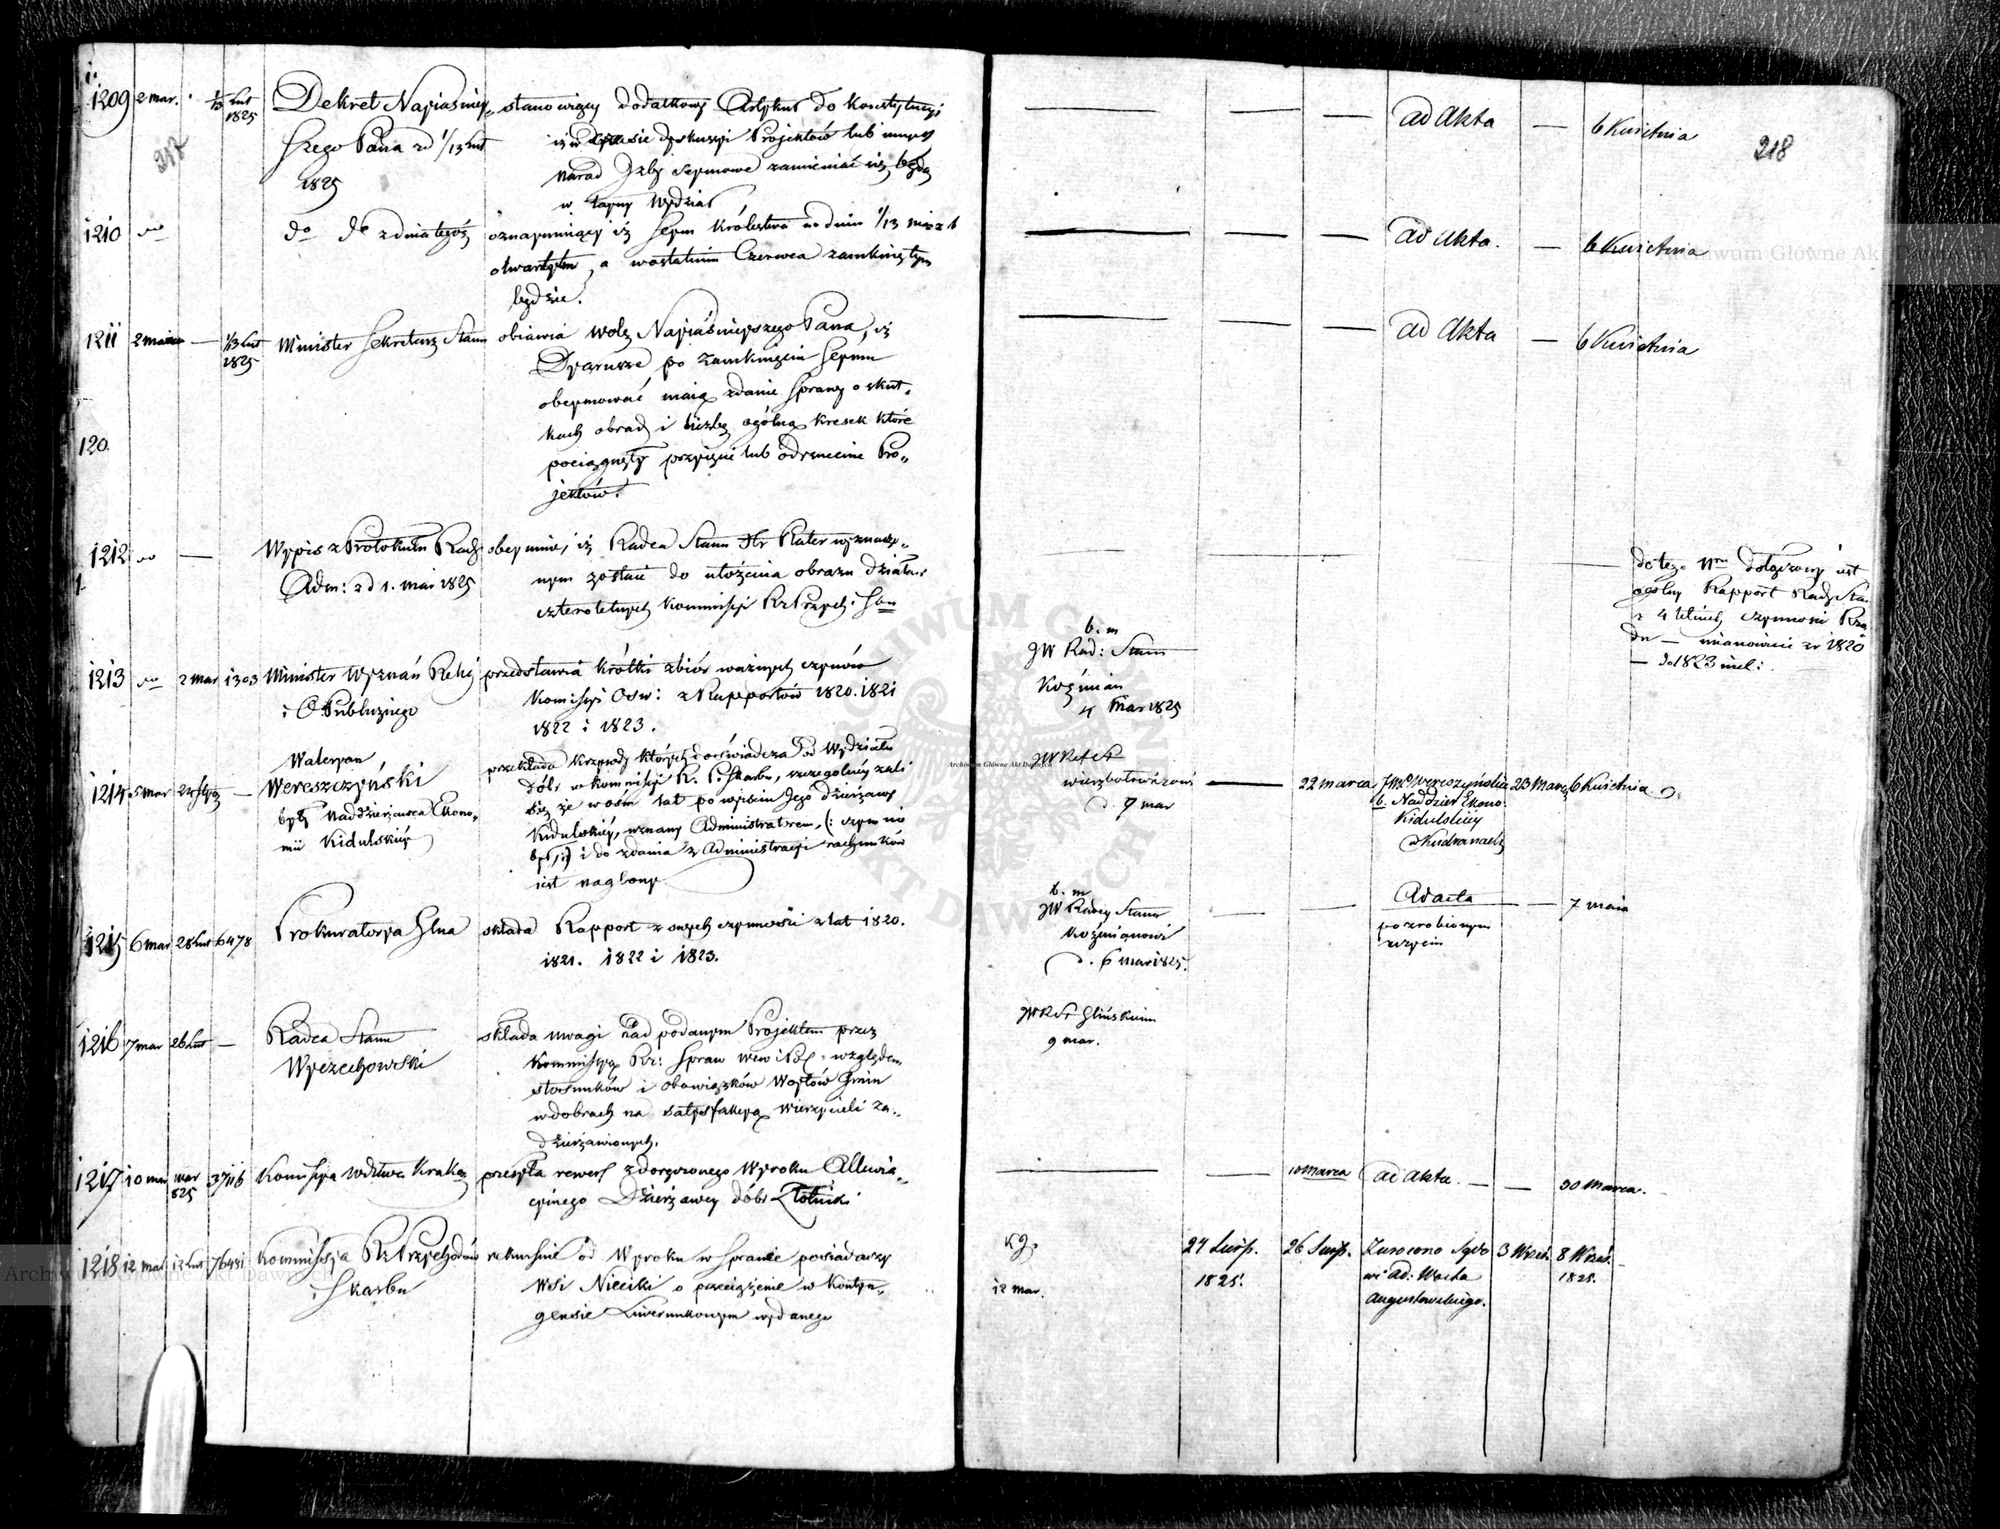 1209 2 mar. 1/13 Lut 1825 Dekret Najiaśniey„ stanowiący dodatkowy Artykuł do Konstytucyi
szego Pana zd 1/13 Lut iż w czasie dyskussyi Projektów lub innych
1825 narad Izby Seymowe zamieniać się będą
w tayny Wydział
ad Akta — 6 Kwietnia
218
1210 do do de zdnia tegoż oznaymuiący iż Seym Królestwa
otwartym, a wostatnim Czerwca zamkniętym
będzie.
ad Akta. — 6 Kwietnia
1211 2 1/13 Lut 1825 Minister Sekretarz Stanu obiawia wolę Nayiaśnieyszego Pana, iż
Dyaryusze po zamknięciu Seymu
obeymować maią zdanie sprawy o skut„
kach obrad i liczbę ogólną kresek które
120.
pociągnęły przyięcie lub odrzucenie Pro„
jektów.
ad Akta — 6 Kwietnia
1212 do — Wypis z Protokułu Rady obeymuie, iż Radca Stanu Hr Plater wyznaczo„
Adm: zd 1. mar 1825 nym został do ułożenia obrazu działań
czteroletnich Kommissyi Rz Przych: i
do tego Nru dołączony iest
ogólny Rapport Rady Sta.
z 4 letnich czynności Rzą
du — mianowicie zr 1820
— do 1823 incl:
1213 do 2 mar 1303 Minister Wyznań Relig przedstawia krótki zbiór ważnych czynów
i O. Publicznego Komissyi Ośw: z Rapportów 1820. 1821
1822 i 1823.
b. m
JW Rad: Stanu
Koźmian
4 mar 1825
1214 5 mar — Waleryan
Wereszczyński
były Naddzierżawca Ekono„
mii Kidulskiéy
przekłada krzywdy których doświadcza od Wydziału
dóbr w Kommissyi R. P. i Skarbu, szczególniéy żali
się że w ośm lat po wyiściu Jego dzierżawy
Kidulskiéy, uznany Administratorem, (: czym nie
był,:) i do zdania z Administracyi rachunków
iest naglony
JW Refer
d. 9 mar
22 marca JMć Wereszczyński 23 Marca 6 Kwietnia
b. Naddzier Ekono.
Kidulskiéy
1215 6 mar 28 Lut 6478 Prokuratorya Glna składa Rapport z swych czynności z lat 1820.
1821. 1822 i 1823.
b. m
JW Radcy Stanu
Koźmianowi
d. 6 mar 1825.
Ad acta — 7 maia
po zrobionym
użyciu
1216 7 mar 26 Lut — Radca Stanu
Wyczechowski
składa uwagi nad podanym Projektem przez
Kommissyą Rz: Spraw wew i Pol: względem
stosunków i obowiązków Woytów Gmin
w dobrach na satysfakcyą wierzycieli za„
dzierżawionych.
JW R St Glińskim
9 mar.
1217 10 mar mar 825 37116 Komissya wdztwa Krakow przesyła rewers z doręczonego Wyroku
Dzierżawcy dóbr Złotniki
10 marca ad Akta. — — 30 Marca.
1218 12 mar 12 Lut 76491 Kommissya Rz Przychodów
i Skarbu
rekursuie od Wyroku w Sprawie posiadaczy
Wsi Nieciki o przeciążenie w Kontyn„
gensie Liwerunkowym wydanego
12 mar.
24 Sierp. 1825. 26 Sierp. Zwrócono Sędo
wi Ad: Wdztwa
Augustowskiego.
3 Wrześ. 8 Wrześ. 1825.
Archiwum Główne Akt Dawnych